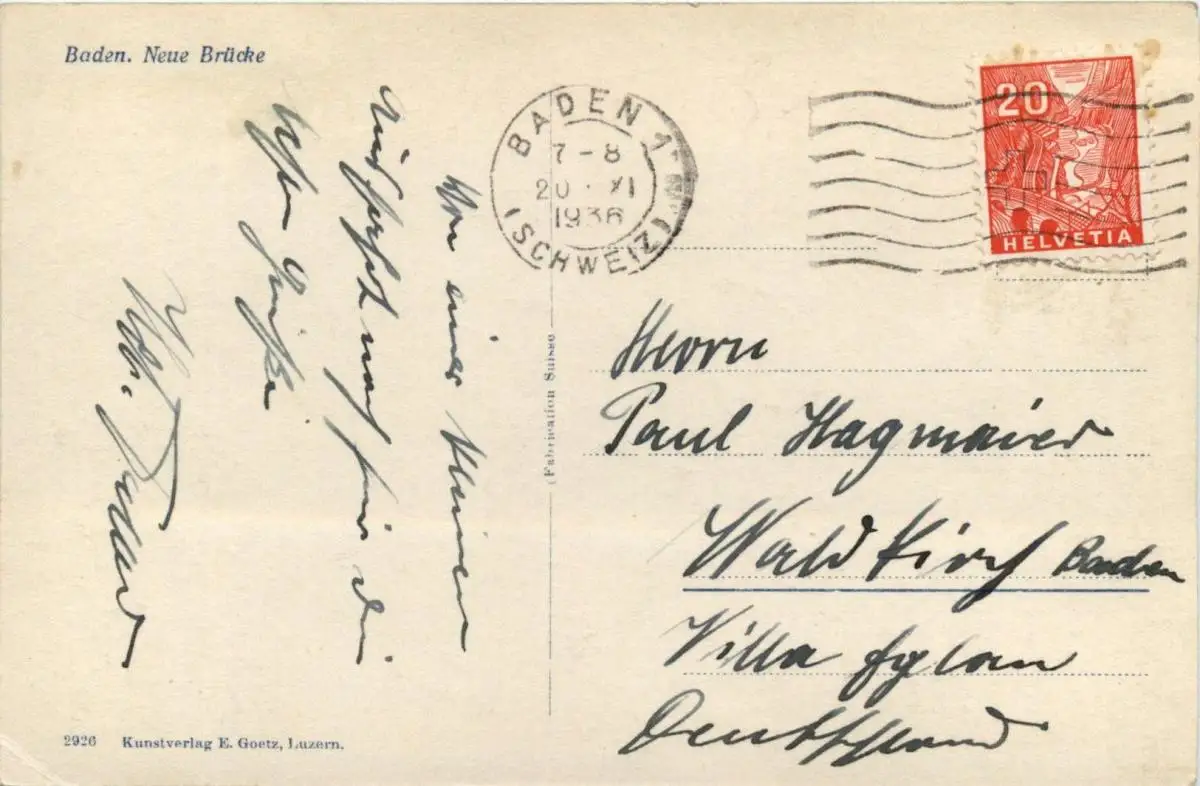 Baden. Neue Brücke
Von einer kleinen
für die
besten Grüße
BADEN 1
7-8
20.XI
1936
(SCHWEIZ)
20
HELVETIA
(Fabrication Suisse
Herrn
Paul Hagmaier
Waldkirch Baden
Villa
Deutschland
2926 Kunstverlag E. Goetz, Luzern.